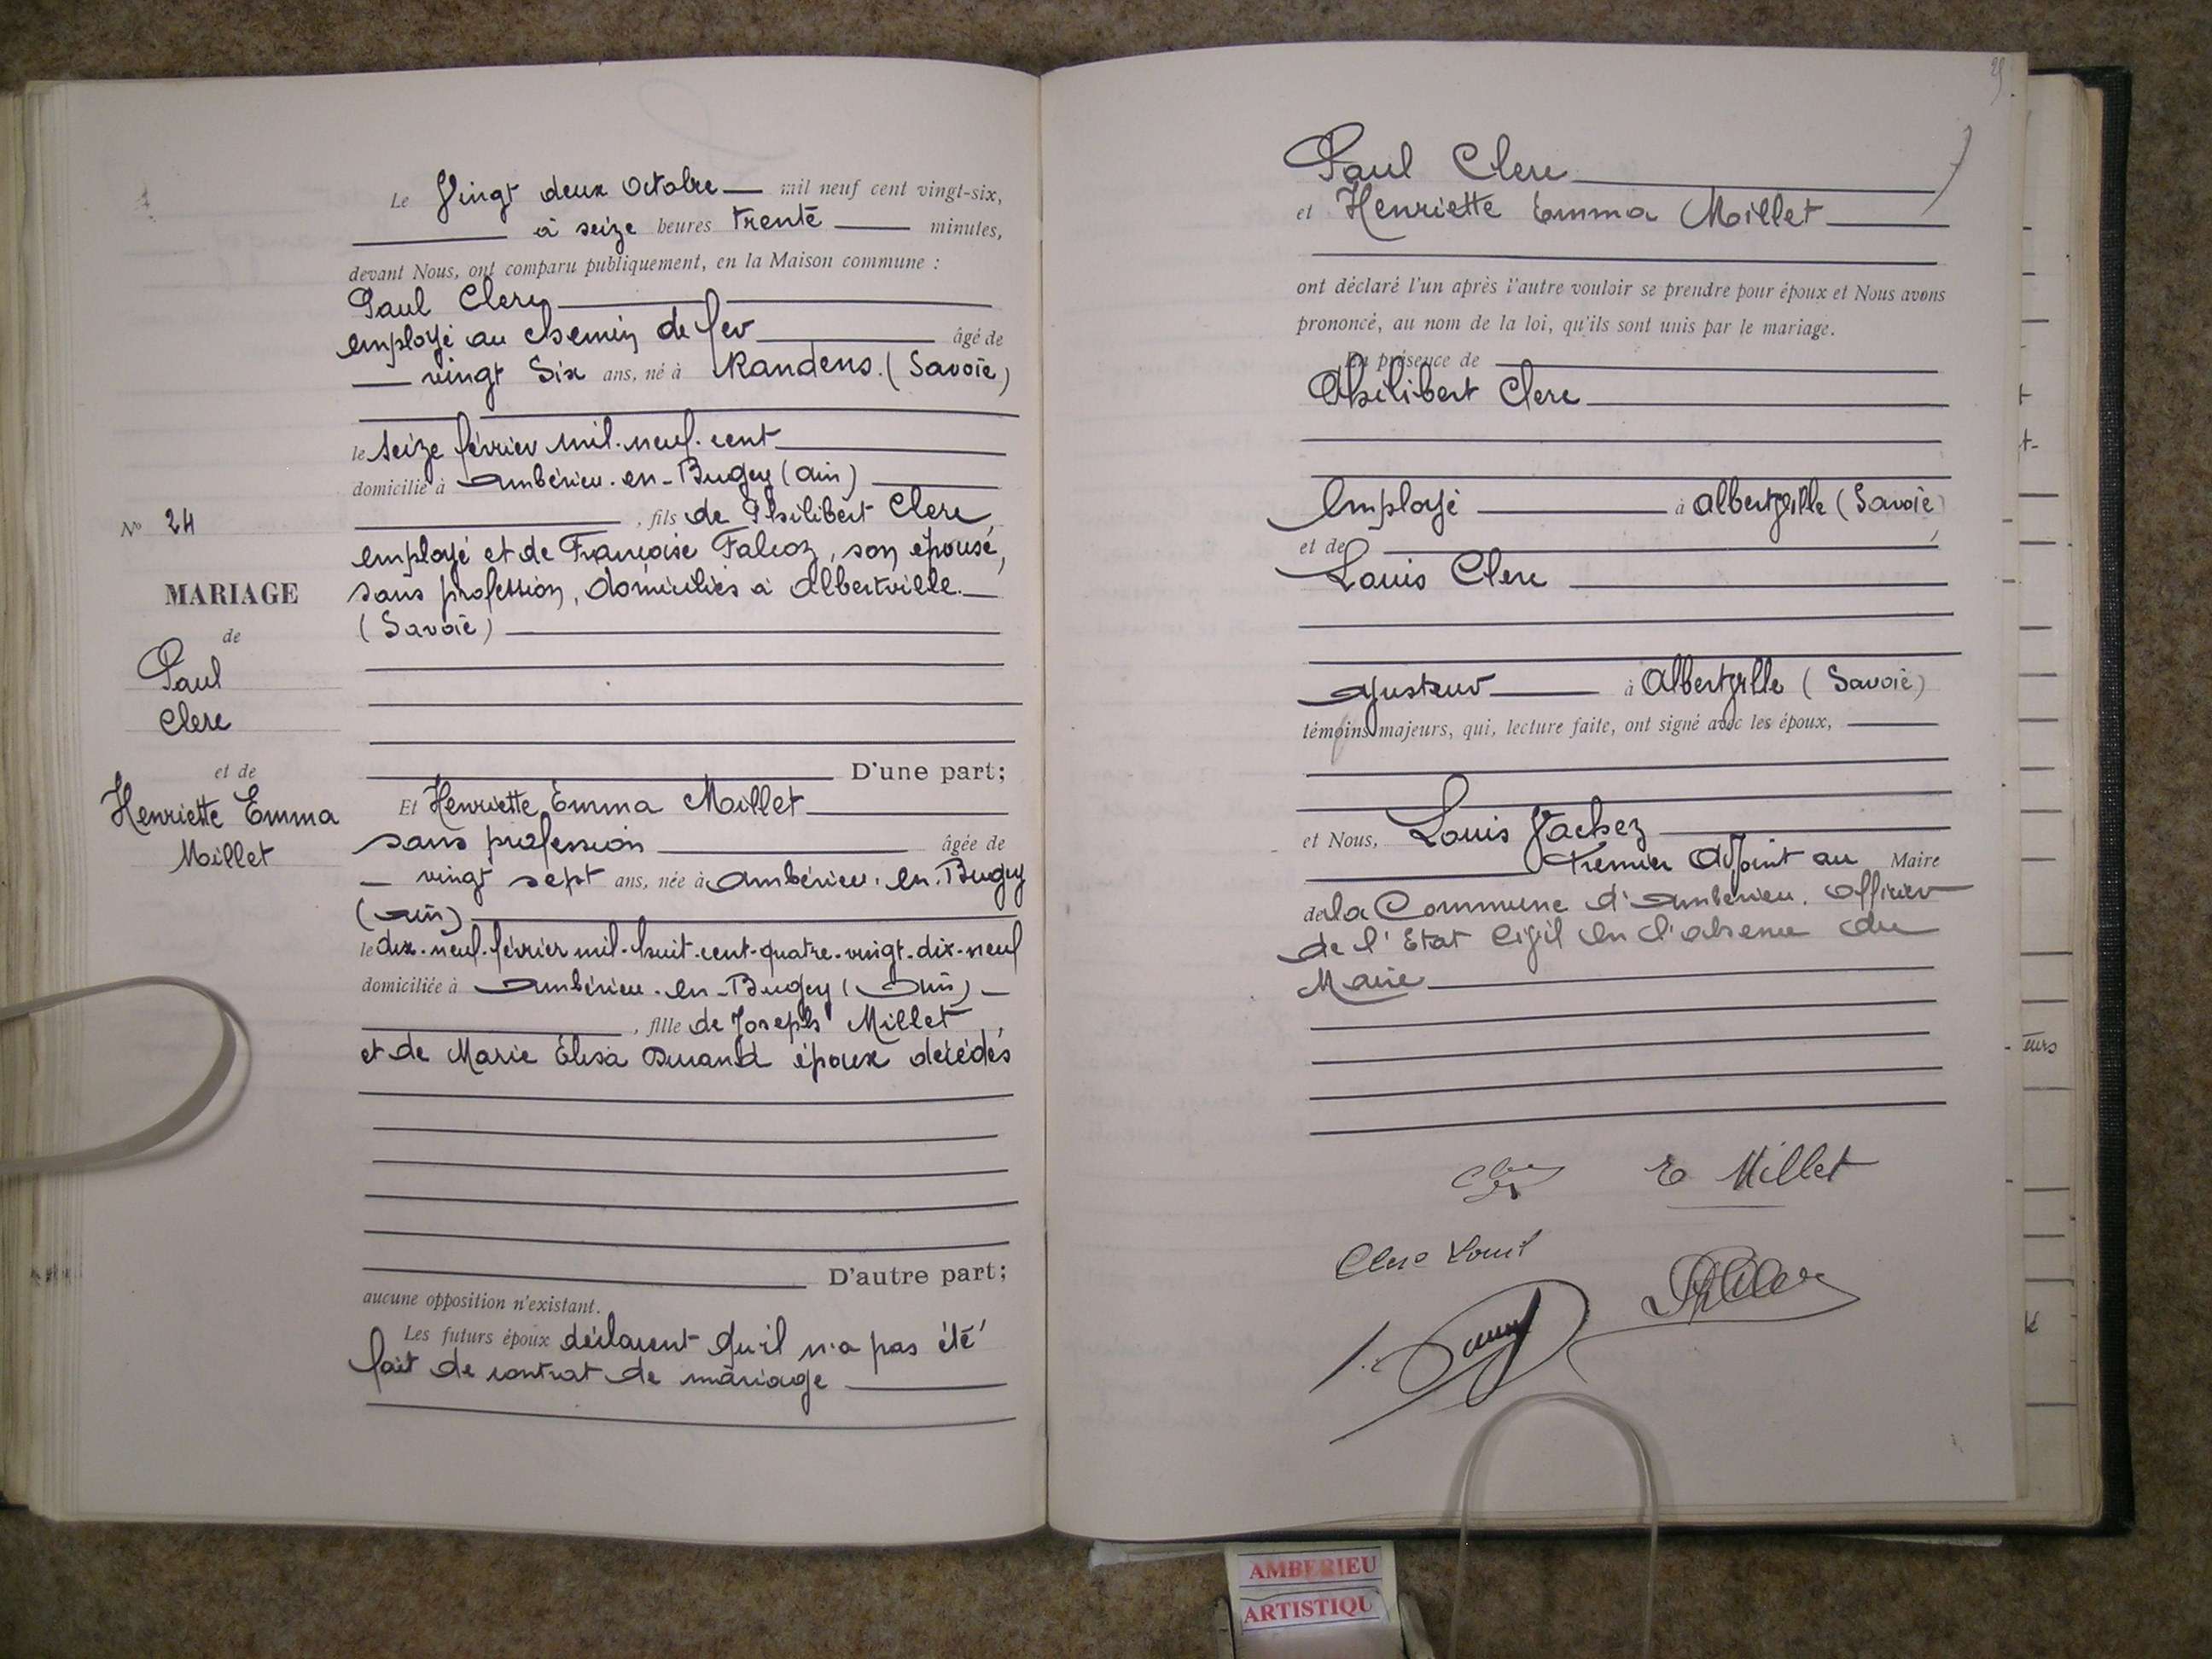 N° 24
MARIAGE
de
Paul
Clerc
et de
Henriette Emma
Millet
Le Vingt deux Octobre mil neuf cent vingt-six,
à seize heures trente minutes,
devant Nous, ont comparu publiquement, en la Maison commune :
Paul Clerc
employé au chemin de fer âgé de
vingt Six ans, né à Randens. (Savoie)
le Seize février mil-neuf-cent
domicilié à Ambérieu-en-Bugey (Ain)
, fils de Philibert Clerc,
employé et de Françoise Falcoz, son épouse,
sans profession, domiciliés à Albertville.
(Savoie)
D'une part;
Et Henriette Emma Millet
sans profession âgée de
vingt sept ans, née à Ambérieu-en-Bugey
(Ain)
le dix-neuf-février mil-huit-cent-quatre-vingt-dix-neuf
domiciliée à Ambérieu-en-Bugey (Ain)
, fille de Joseph Millet,
et de Marie Elisa Durand époux décédés
D'autre part;
aucune opposition n'existant.
Les futurs époux déclarent qu'il n'a pas été
fait de contrat de mariage
Paul Clerc
et Henriette Emma Millet
ont déclaré l'un après l'autre vouloir se prendre pour époux et Nous avons
prononcé, au nom de la loi, qu'ils sont unis par le mariage.
En présence de
Philibert Clerc
Employé à Albertville (Savoie)
et de
Louis Clerc
Ajusteur à Albertville (Savoie)
témoins majeurs, qui, lecture faite, ont signé avec les époux,
et Nous, Louis Vachez
Premier Adjoint au Maire
de la Commune d'Ambérieu. Officier
de l'Etat Civil en l'absence du
Maire
E Millet
Clerc Louis
AMBERIEU
ARTISTIQU